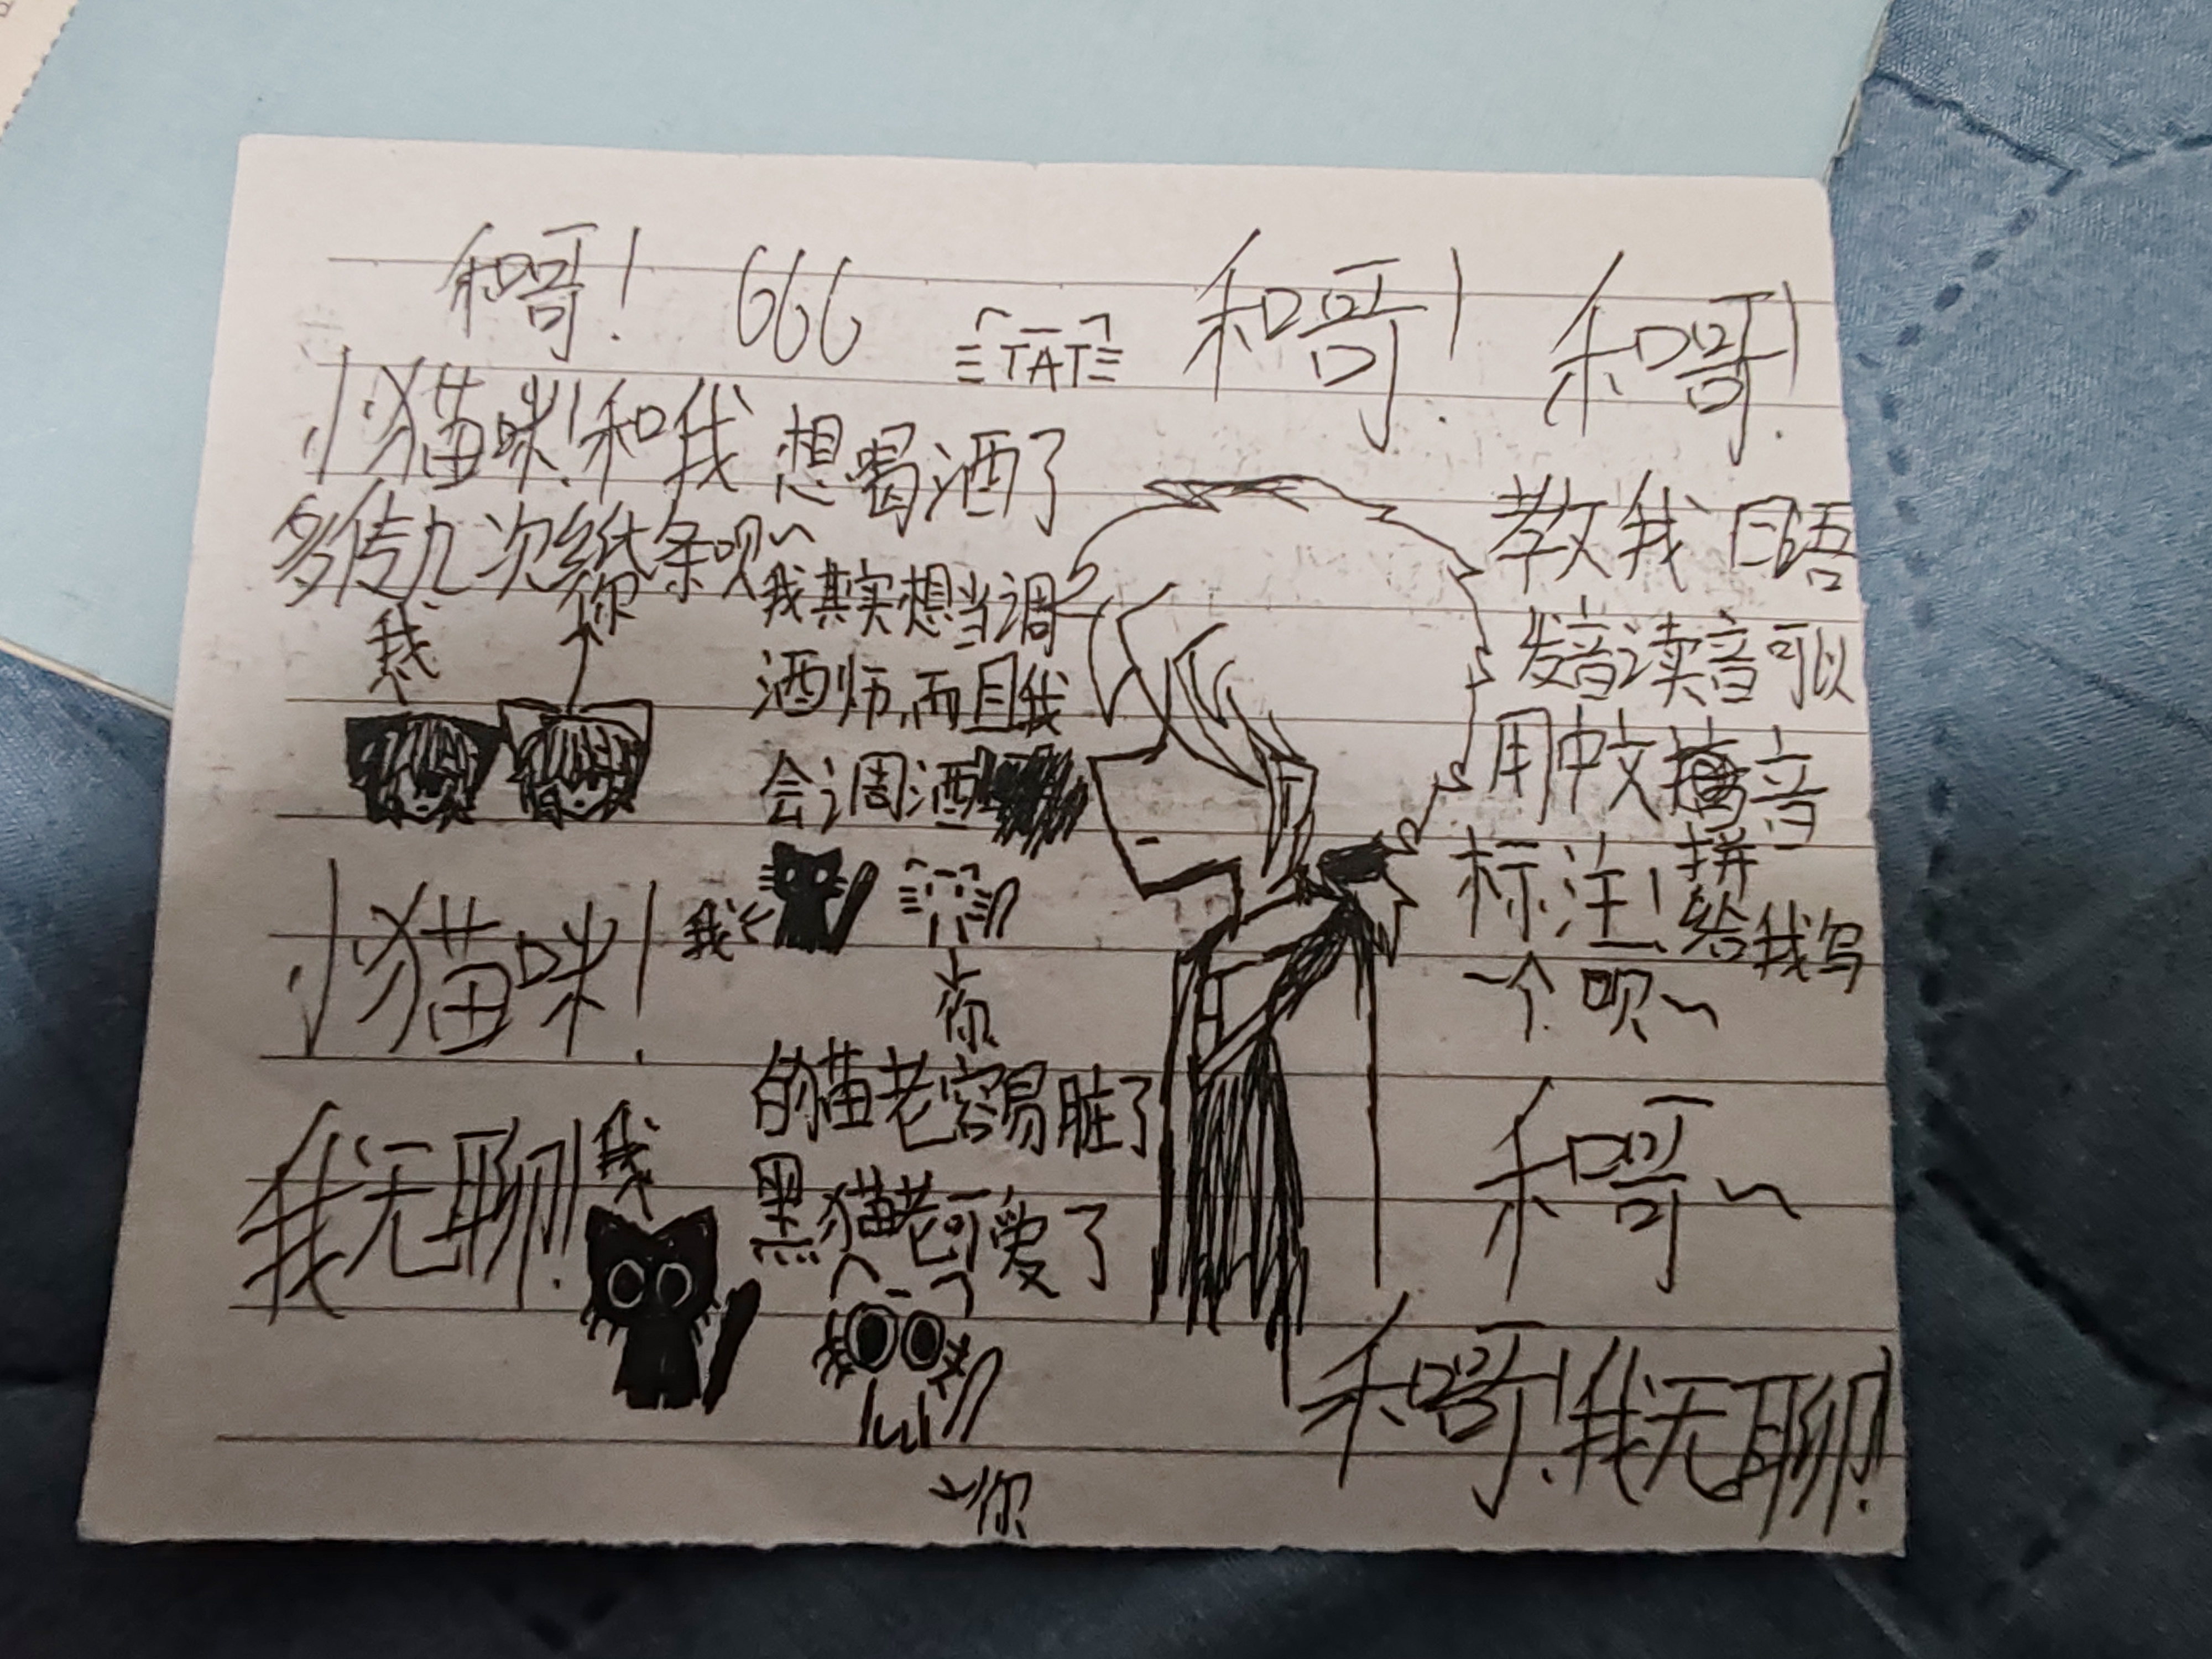 和哥! 666
TAT
和哥! 和哥!
小猫咪!和我
多传几次纸条呗~
我
你
想喝酒了
我其实想当调
酒师,而且我
会调酒
我
你
教我日语
发音读音可以
用中文拼音
标注!给我写
一个呗~
小猫咪!
白猫老容易脏了
黑猫老可爱了
我无聊!
我
你
和哥~
和哥!我无聊!